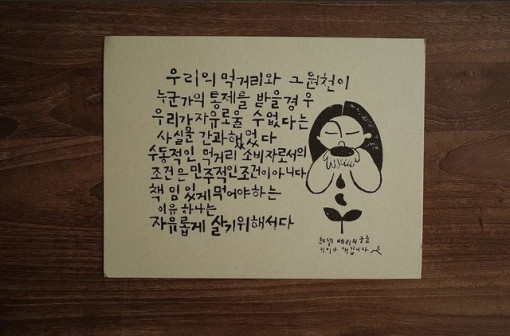 우리의 먹거리와 그 원천이
누군가의 통제를 받을경우
우리가 자유로울 수 없다는
사실을 간과했었다
수동적인 먹거리 소비자로서의
조건은 민주적인 조건이 아니다
책임있게 먹어야하는
이유 하나는
자유롭게 살기위해서다